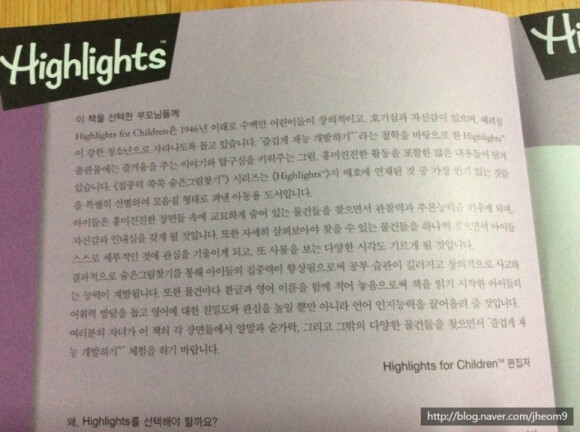 Highlights™
Hi
이 책을 선택한 부모님들께
Highlights for Children은 1946년 이래로 수백만 어린이들이 창의적이고, 호기심과 자신감이 있으며, 배려심
이 강한 청소년으로 자라나도록 돕고 있습니다. '즐겁게 재능 개발하기™'라는 철학을 바탕으로 한 Highlights™
출판물에는 즐거움을 주는 이야기와 탐구심을 키워주는 그림, 흥미진진한 활동을 포함한 많은 내용들이 담겨
있습니다. 《집중력 쑥쑥 숨은그림찾기™》 시리즈는 《Highlights™》지 매호에 연재된 것 중 가장 인기 있는 것들
을 특별히 선별하여 모음집 형태로 펴낸 아동용 도서입니다.
아이들은 흥미진진한 장면들 속에 교묘하게 숨어 있는 물건들을 찾으면서 관찰력과 추론능력을 키우게 되며,
자신감과 인내심을 갖게 될 것입니다. 또한 자세히 살펴보아야 찾을 수 있는 물건들을 하나씩 찾으면서 아이들
스스로 세부적인 것에 관심을 기울이게 되고, 또 사물을 보는 다양한 시각도 기르게 될 것입니다.
결과적으로 숨은그림찾기를 통해 아이들의 집중력이 향상됨으로써 공부 습관이 길러지고 창의적으로 사고하
는 능력이 개발됩니다. 또한 물건마다 한글과 영어 이름을 함께 적어 놓음으로써 책을 읽기 시작한 아이들의
어휘력 발달을 돕고 영어에 대한 친밀도와 관심을 높일 뿐만 아니라 언어 인지능력을 끌어올려 줄 것입니다.
여러분의 자녀가 이 책의 각 장면들에서 양말과 숟가락, 그리고 그밖의 다양한 물건들을 찾으면서 '즐겁게 재
능 개발하기™' 체험을 하기 바랍니다.
Highlights for Children™ 편집자
왜, Highlights를 선택해야 할까요?
http://blog.naver.com/jheom9